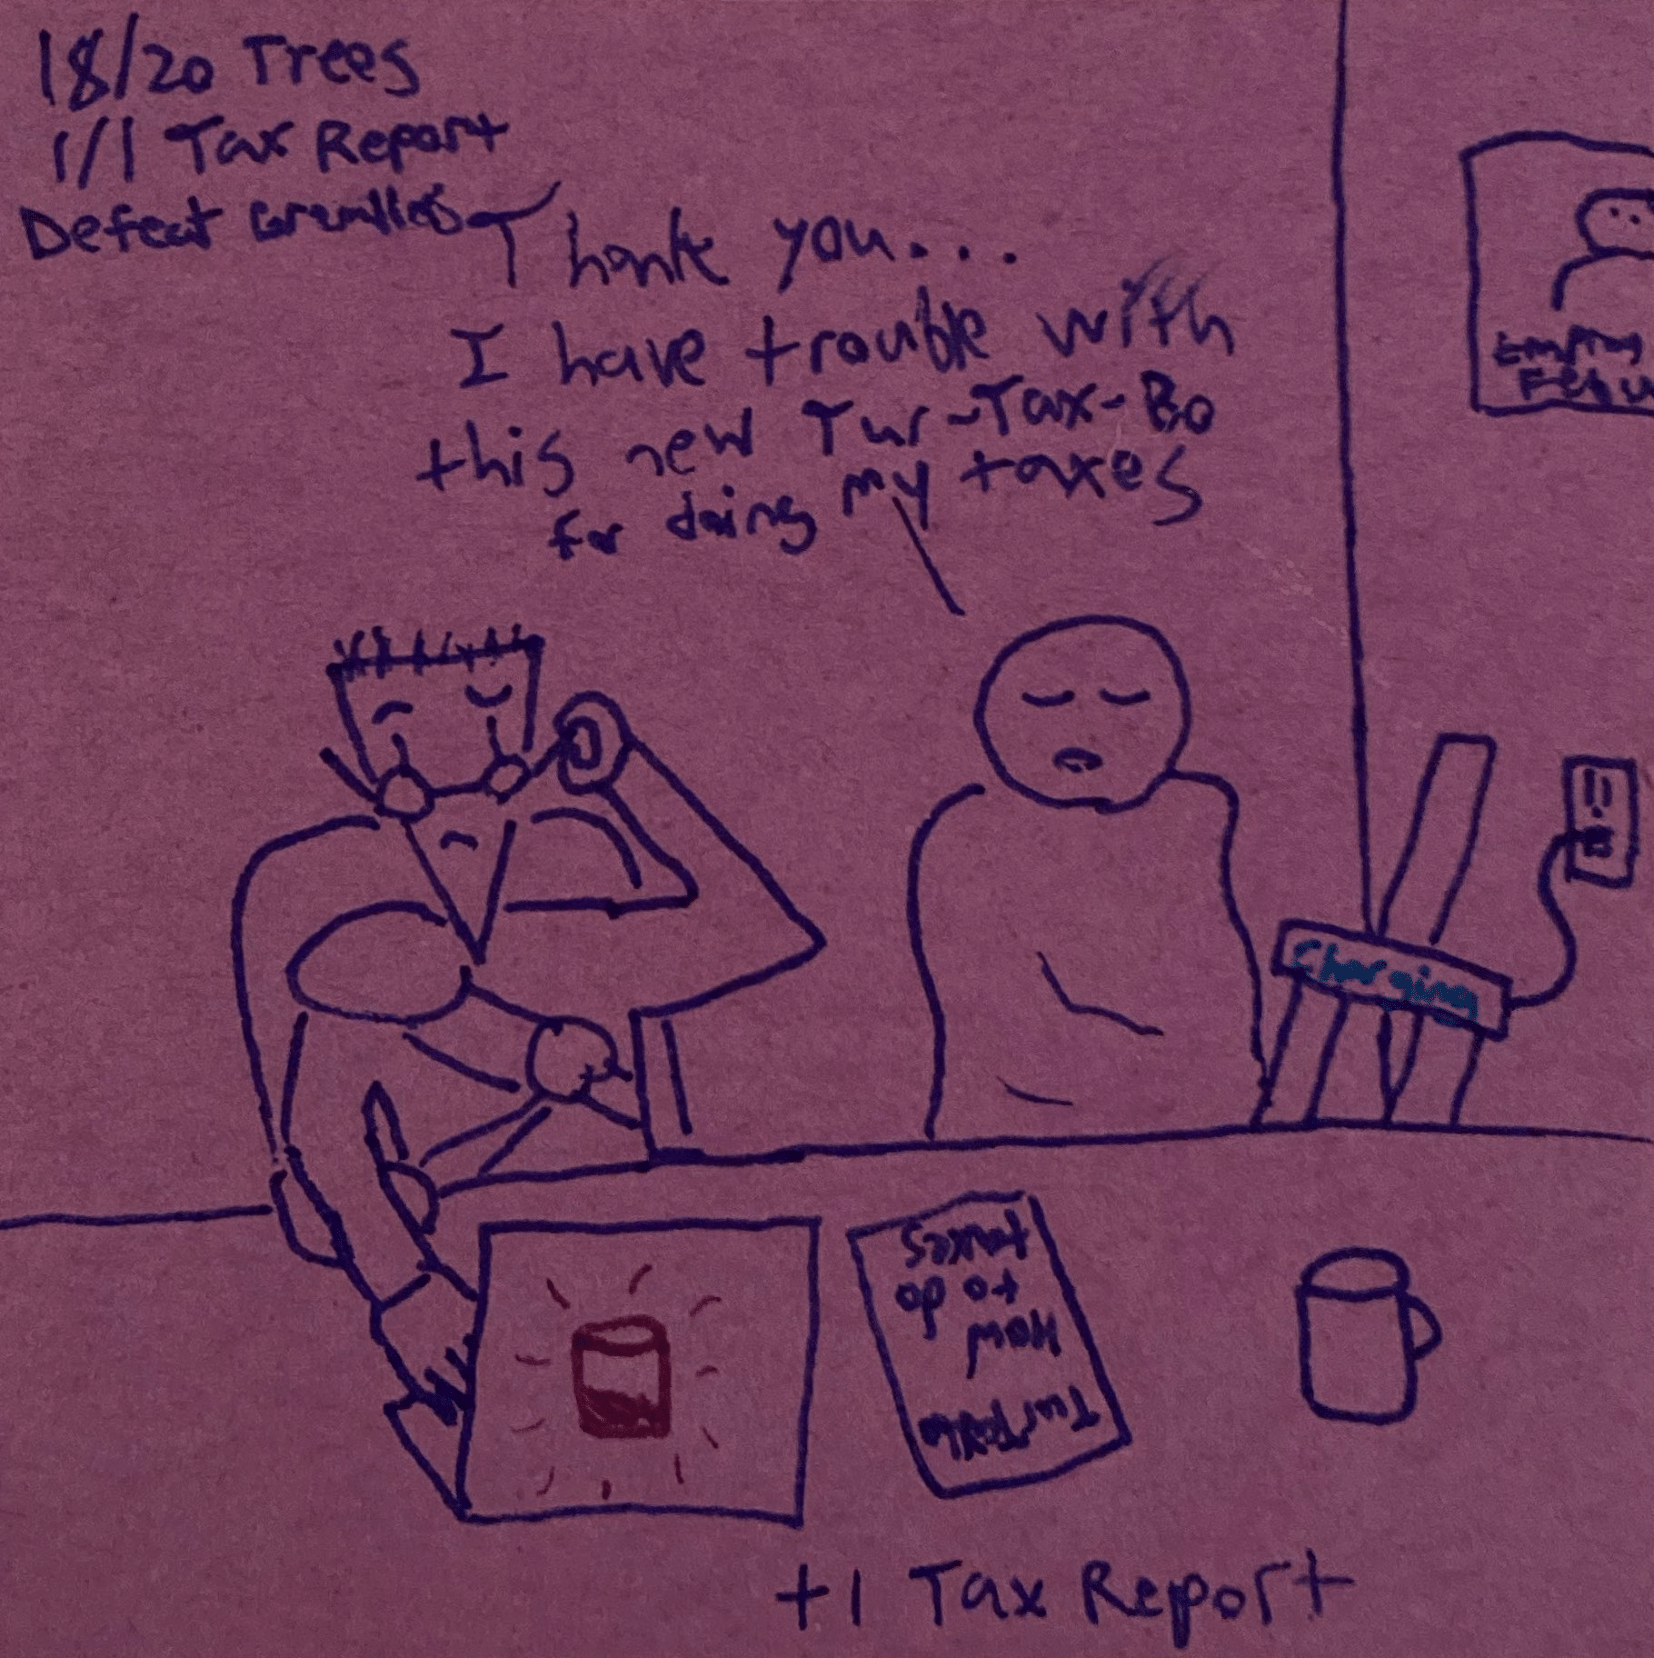 18/20 Trees
1/1 Tax Report
Defeat Gremlins
Thank you...
I have trouble with
this new Tur-Tax-Bo
for doing my taxes
Charging
TurTaxBo
How
to do
taxes
+1 Tax Report